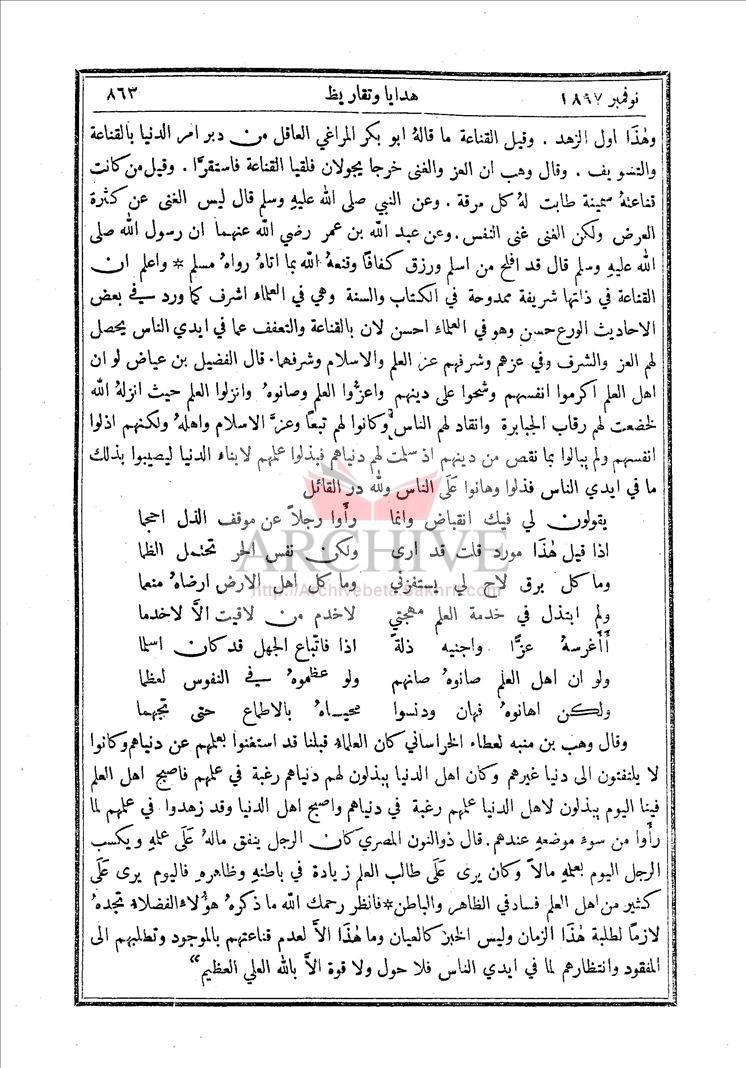 نوفمبر ١٨٩٧ هدايا وتقاريظ ٨٦٣
وهٰذا اول الزهد . وقيل القناعة ما قالهُ ابو بكر المراغي العاقل من دبر امر الدنيا بالقناعة
والتسويف . وقال وهب ان العز والغنى خرجا يجولان فلقيا القناعة فاستقرَّا . وقيل من كانت
قناعتهُ سمينة طابت لهُ كل مرقة . وعن النبي صلى الله عليهِ وسلم قال ليس الغنى عن كثرة
العرض ولكن الغنى غنى النفس . وعن عبد الله بن عمر رضي الله عنهما ان رسول الله صلى
الله عليهِ وسلم قال قد افلح من اسلم ورزق كفافًا وقنعهُ الله بما اتاهُ رواهُ مسلم * واعلم ان
القناعة في ذاتها شريفة ممدوحة في الكتاب والسنة وهي في العلماء اشرف كما ورد في بعض
الاحاديث الورع حسن وهو في العلماء احسن لان بالقناعة والتعفف عما في ايدي الناس يحصل
لهم العز والشرف وفي عزهم وشرفهم عز العلم والاسلام وشرفهما . قال الفضيل بن عياض لو ان
اهل العلم اكرموا انفسهم وشحوا على دينهم واعزُّوا العلم وصانوهُ وانزلوا العلم حيث انزلهُ الله
لخضعت لهم رقاب الجبابرة وانقاد لهم الناس وكانوا لهم تبعًا وعزَّ الاسلام واهلهُ ولكنهم اذلوا
انفسهم ولم يبالوا بما نقص من دينهم اذ سلمت لهم دنياهم فبذلوا علمهم لابناء الدنيا ليصيبوا بذلك
ما في ايدي الناس فذلوا وهانوا عَلَى الناس ولله در القائل
يقولون لي فيك انقباض وانما رأَوا رجلاً عن موقف الذل احجما
اذا قيل هٰذا مورد قلت قد ارى ولكن نفس الحر تحتمل الظما
وما كل برق لاح لي يستفزني وما كل اهل الارض ارضاهُ منعما
ولم ابتذل في خدمة العلم مهجتي لاخدم من لاقيت الاَّ لاخدما
أَأَغرسهُ عزًّا واجنيهِ ذلةً اذا فاتّباع الجهل قد كان اسلما
ولو ان اهل العلم صانوهُ صانهم ولو عظموهُ في النفوس لعظما
ولكن اهانوهُ فهان ودنسوا محياهُ بالاطماع حتى تجهما
وقال وهب بن منبه لعطاء الخراساني كان العلماء قبلنا قد استغنوا بعلمهم عن دنياهم وكانوا
لا يلتفتون الى دنيا غيرهم وكان اهل الدنيا يبذلون لهم دنياهم رغبة في علمهم فاصبح اهل العلم
فينا اليوم يبذلون لاهل الدنيا علمهم رغبة في دنياهم واصبح اهل الدنيا وقد زهدوا في علمهم لما
رأَوا من سوء موضعهِ عندهم . قال ذوالنون المصري كان الرجل ينفق مالهُ عَلَى علمهِ ويكسب
الرجل اليوم بعلمهِ مالاً وكان يرى عَلَى طالب العلم زيادة في باطنهِ وظاهرهِ فاليوم يرى عَلَى
كثير من اهل العلم فساد في الظاهر والباطن * فانظر رحمك الله ما ذكرهُ هؤُلاء الفضلاء تجدهُ
لازمًا لطلبة هٰذا الزمان وليس الخبر كالعيان وما هٰذا الاَّ لعدم قناعتهم بالموجود وتطلبهم الى
المفقود وانتظارهم لما في ايدي الناس فلا حول ولا قوة الاَّ بالله العلي العظيم “
ARCHIVE
http://Archivebeta.Sakhrit.com